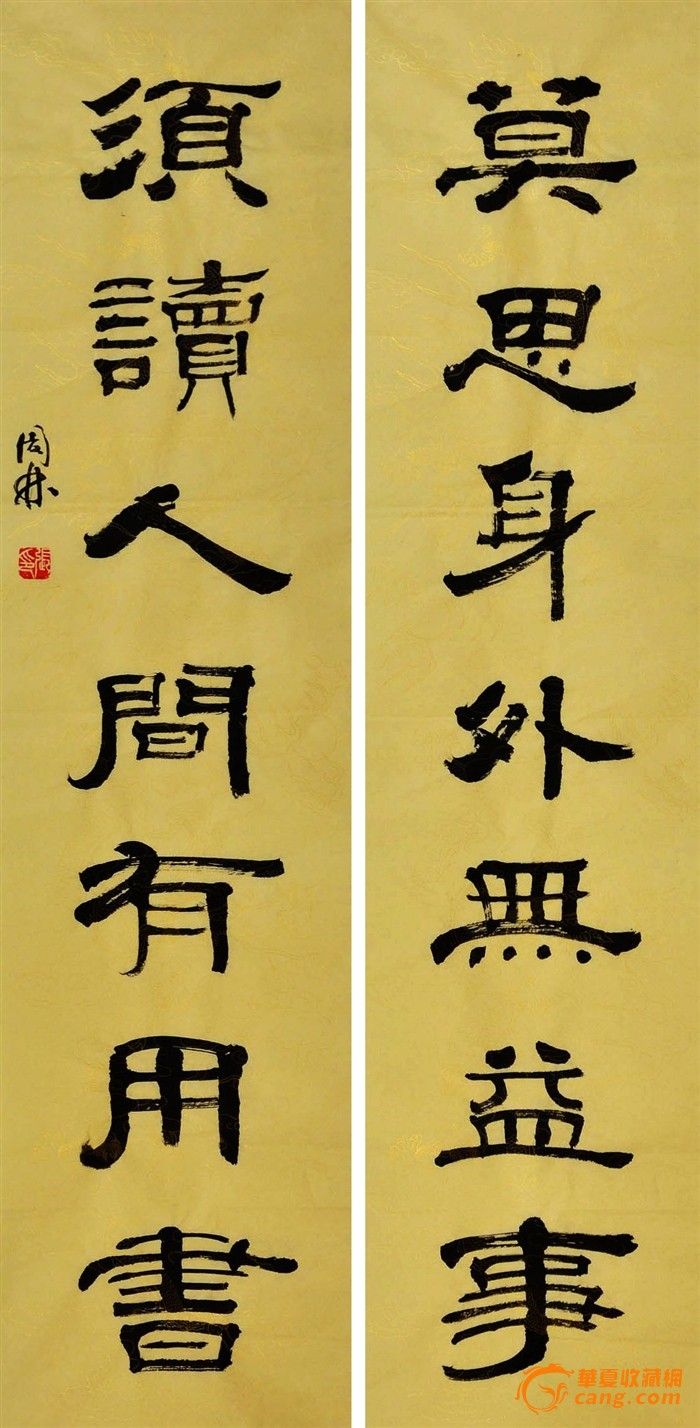 莫思身外無益事
須讀人間有用書
周林
張印
華夏收藏網
cang.com